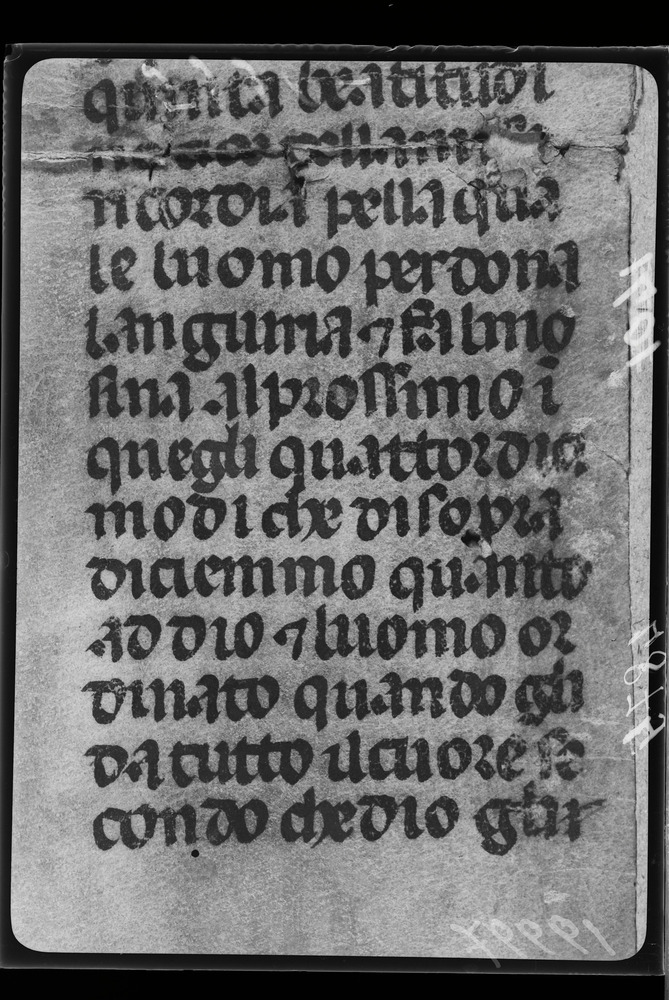 quinta beatitudi
ne cioe della mise
ricordia pella qua
le luomo perdona
langiuria ⁊ fa limo
sina al prossimo ī
quegli quattordici
modi che di sopra
diciemmo quanto
ad dio ⁊ luomo or
dinato quando gli
da tutto il cuore se
condo che dio glir